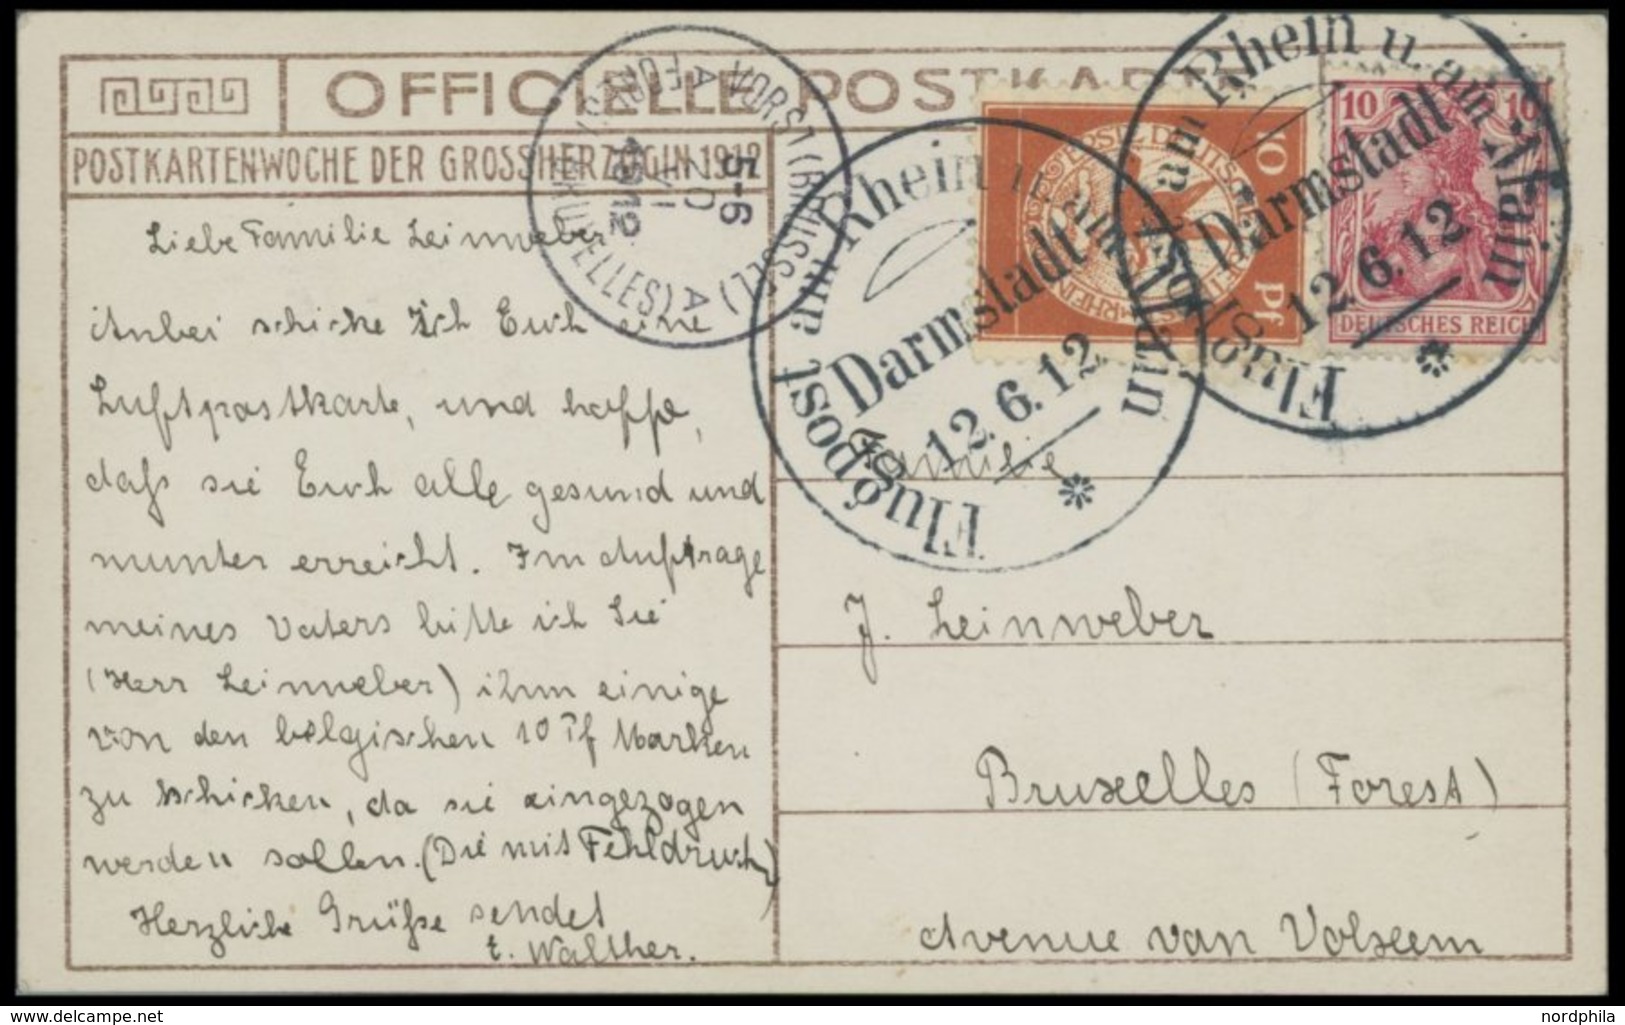 OFFICIELLE POSTKARTE
POSTKARTENWOCHE DER GROSSHERZOGIN 1912
Liebe Familie Leinweber
Anbei schicke Ich Euch eine
Luftpostkarte, und hoffe,
daß sie Euch alle gesund und
munter erreicht. Im Auftrage
meines Vaters bitte ich Sie
(Herr Leinweber) ihm einige
von den belgischen 10 Pf Marken
zu schicken, da sie eingezogen
werden sollen. (Die mit Fehldruck)
Herzliche Grüße sendet
t. Walther.
VORST (BRUSSEL) A
FOREST (BRUXELLES) A
5-6
20
VI
1912
Flugpost am Rhein u. am Main
Darmstadt
12.6.12
10 Pf
Flugpost am Rhein u. am Main
Darmstadt
12.6.12
10 10
DEUTSCHES REICH
Familie
J. Leinweber
Bruxelles (Forest)
Avenue van Volxem
delcampe.net
nordphila